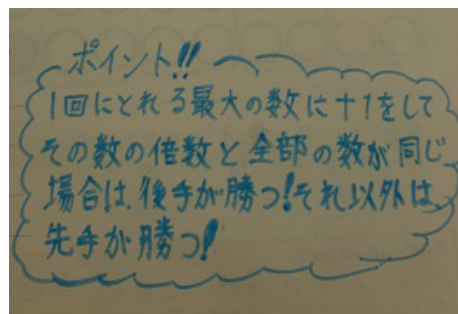 ポイント!!
1回にとれる最大の数に+1をして
その数の倍数と全部の数が同じ
場合は、後手が勝つ!それ以外は、
先手が勝つ!